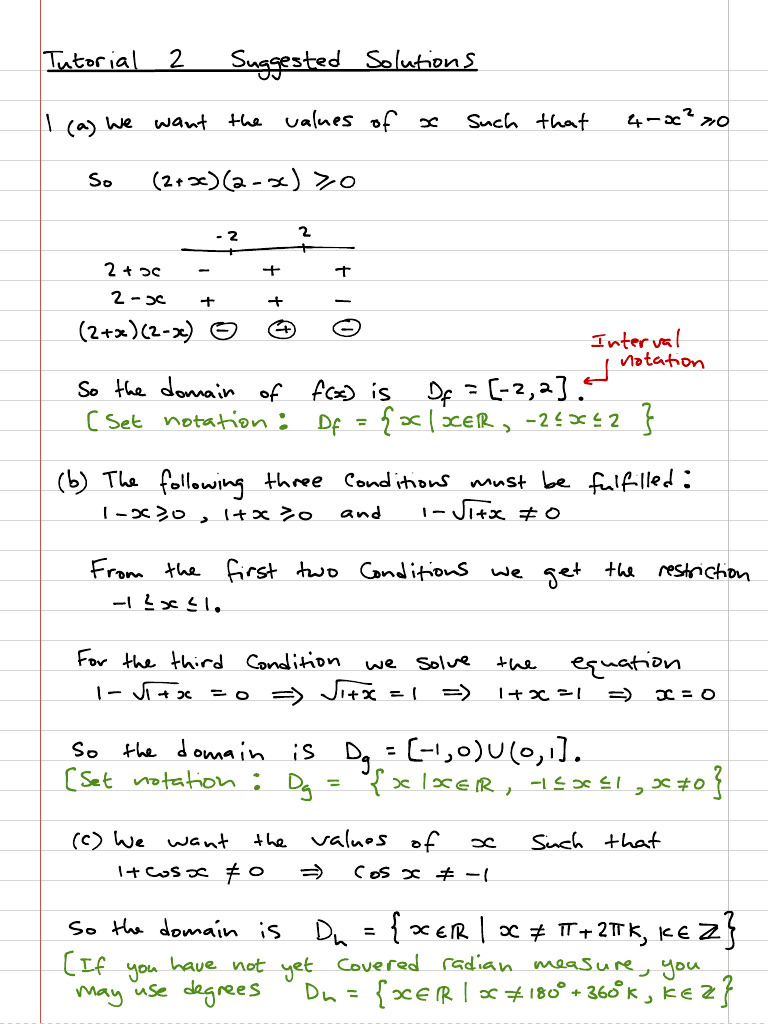 Tutorial 2 Suggested Solutions
1 (a) We want the values of x such that 4-x² ≥0
So (2+x)(2-x) ≥0
-2 2
2+x - + +
2-x + + -
(2+x)(2-x) ⊖ ⊕ ⊖
Interval
notation
So the domain of f(x) is D_f = [-2,2].
[Set notation: D_f = {x|x∈ℝ, -2≤x≤2 }
(b) The following three conditions must be fulfilled:
1-x≥0, 1+x≥0 and 1-√(1+x) ≠0
From the first two conditions we get the restriction
-1≤x≤1.
For the third condition we solve the equation
1-√(1+x) = 0 ⟹ √(1+x) = 1 ⟹ 1+x=1 ⟹ x=0
So the domain is D_g = [-1,0)∪(0,1].
[Set notation: D_g = {x|x∈ℝ, -1≤x≤1, x≠0}
(c) We want the values of x such that
1+cosx ≠0 ⟹ cos x ≠ -1
So the domain is D_h = {x∈ℝ | x ≠ π+2πk, k∈ℤ}
[If you have not yet covered radian measure, you
may use degrees D_h = {x∈ℝ | x≠180°+360°k, k∈ℤ}